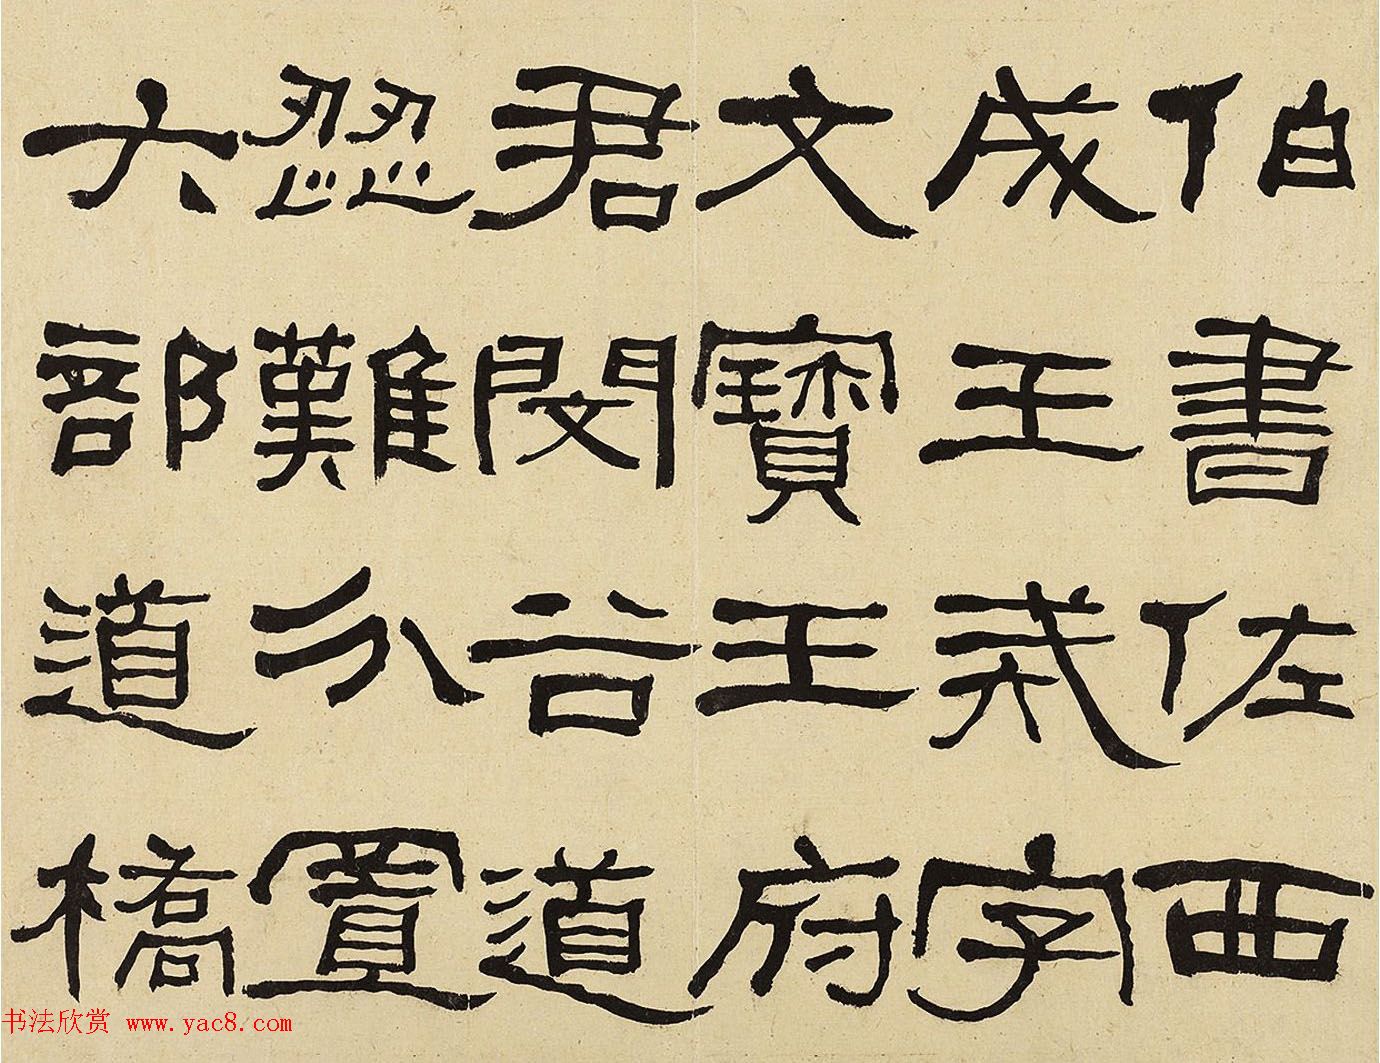 伯書佐西
成王戒字
文寶王府
君閔谷道
歰難分置
六部道橋
书法欣赏 www.yac8.com